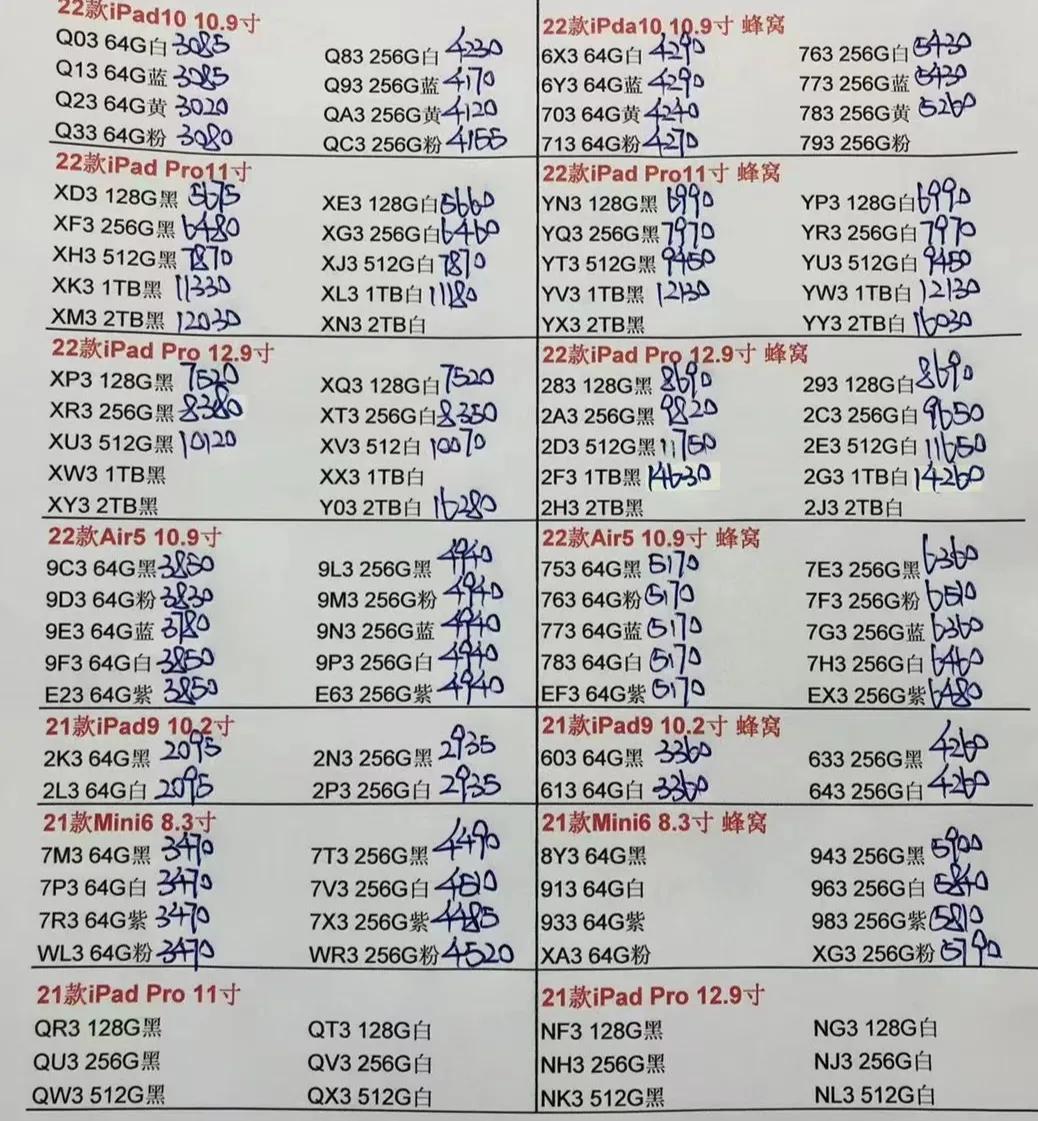 22款iPad10 10.9寸
Q03 64G白 3085
Q83 256G白 4230
Q13 64G蓝 3085
Q93 256G蓝 4170
Q23 64G黄 3020
QA3 256G黄 4120
Q33 64G粉 3080
QC3 256G粉 4155
22款iPda10 10.9寸 蜂窝
6X3 64G白 4290
763 256G白 5430
6Y3 64G蓝 4290
773 256G蓝 5430
703 64G黄 4240
783 256G黄 5260
713 64G粉 4270
793 256G粉
22款iPad Pro11寸
XD3 128G黑 5675
XE3 128G白 5660
XF3 256G黑 6480
XG3 256G白 6460
XH3 512G黑 7870
XJ3 512G白 7870
XK3 1TB黑 11330
XL3 1TB白 11180
XM3 2TB黑 12030
XN3 2TB白
22款iPad Pro11寸 蜂窝
YN3 128G黑 6990
YP3 128G白 6990
YQ3 256G黑 7970
YR3 256G白 7970
YT3 512G黑 9450
YU3 512G白 9450
YV3 1TB黑 12130
YW3 1TB白 12130
YX3 2TB黑
YY3 2TB白 16030
22款iPad Pro 12.9寸
XP3 128G黑 7520
XQ3 128G白 7520
XR3 256G黑 8380
XT3 256G白 8350
XU3 512G黑 10120
XV3 512白 10070
XW3 1TB黑
XX3 1TB白
XY3 2TB黑
Y03 2TB白 16280
22款iPad Pro 12.9寸 蜂窝
283 128G黑 8690
293 128G白 8690
2A3 256G黑 9820
2C3 256G白 9650
2D3 512G黑 11750
2E3 512G白 11650
2F3 1TB黑 14630
2G3 1TB白 14260
2H3 2TB黑
2J3 2TB白
22款Air5 10.9寸
9C3 64G黑 3850
9L3 256G黑 4940
9D3 64G粉 3830
9M3 256G粉 4940
9E3 64G蓝 3780
9N3 256G蓝 4940
9F3 64G白 3850
9P3 256G白 4940
E23 64G紫 3850
E63 256G紫 4940
22款Air5 10.9寸 蜂窝
753 64G黑 5170
7E3 256G黑 6360
763 64G粉 5170
7F3 256G粉 6510
773 64G蓝 5170
7G3 256G蓝 6360
783 64G白 5170
7H3 256G白 6460
EF3 64G紫 5170
EX3 256G紫 6480
21款iPad9 10.2寸
2K3 64G黑 2095
2N3 256G黑 2935
2L3 64G白 2095
2P3 256G白 2935
21款iPad9 10.2寸 蜂窝
603 64G黑 3360
633 256G黑 4260
613 64G白 3360
643 256G白 4260
21款Mini6 8.3寸
7M3 64G黑 3470
7T3 256G黑 4490
7P3 64G白 3470
7V3 256G白 4510
7R3 64G紫 3470
7X3 256G紫 4485
WL3 64G粉 3470
WR3 256G粉 4520
21款Mini6 8.3寸 蜂窝
8Y3 64G黑
943 256G黑 5900
913 64G白
963 256G白 5840
933 64G紫
983 256G紫 5810
XA3 64G粉
XG3 256G粉 5790
21款iPad Pro 11寸
QR3 128G黑
QT3 128G白
QU3 256G黑
QV3 256G白
QW3 512G黑
QX3 512G白
21款iPad Pro 12.9寸
NF3 128G黑
NG3 128G白
NH3 256G黑
NJ3 256G白
NK3 512G黑
NL3 512G白